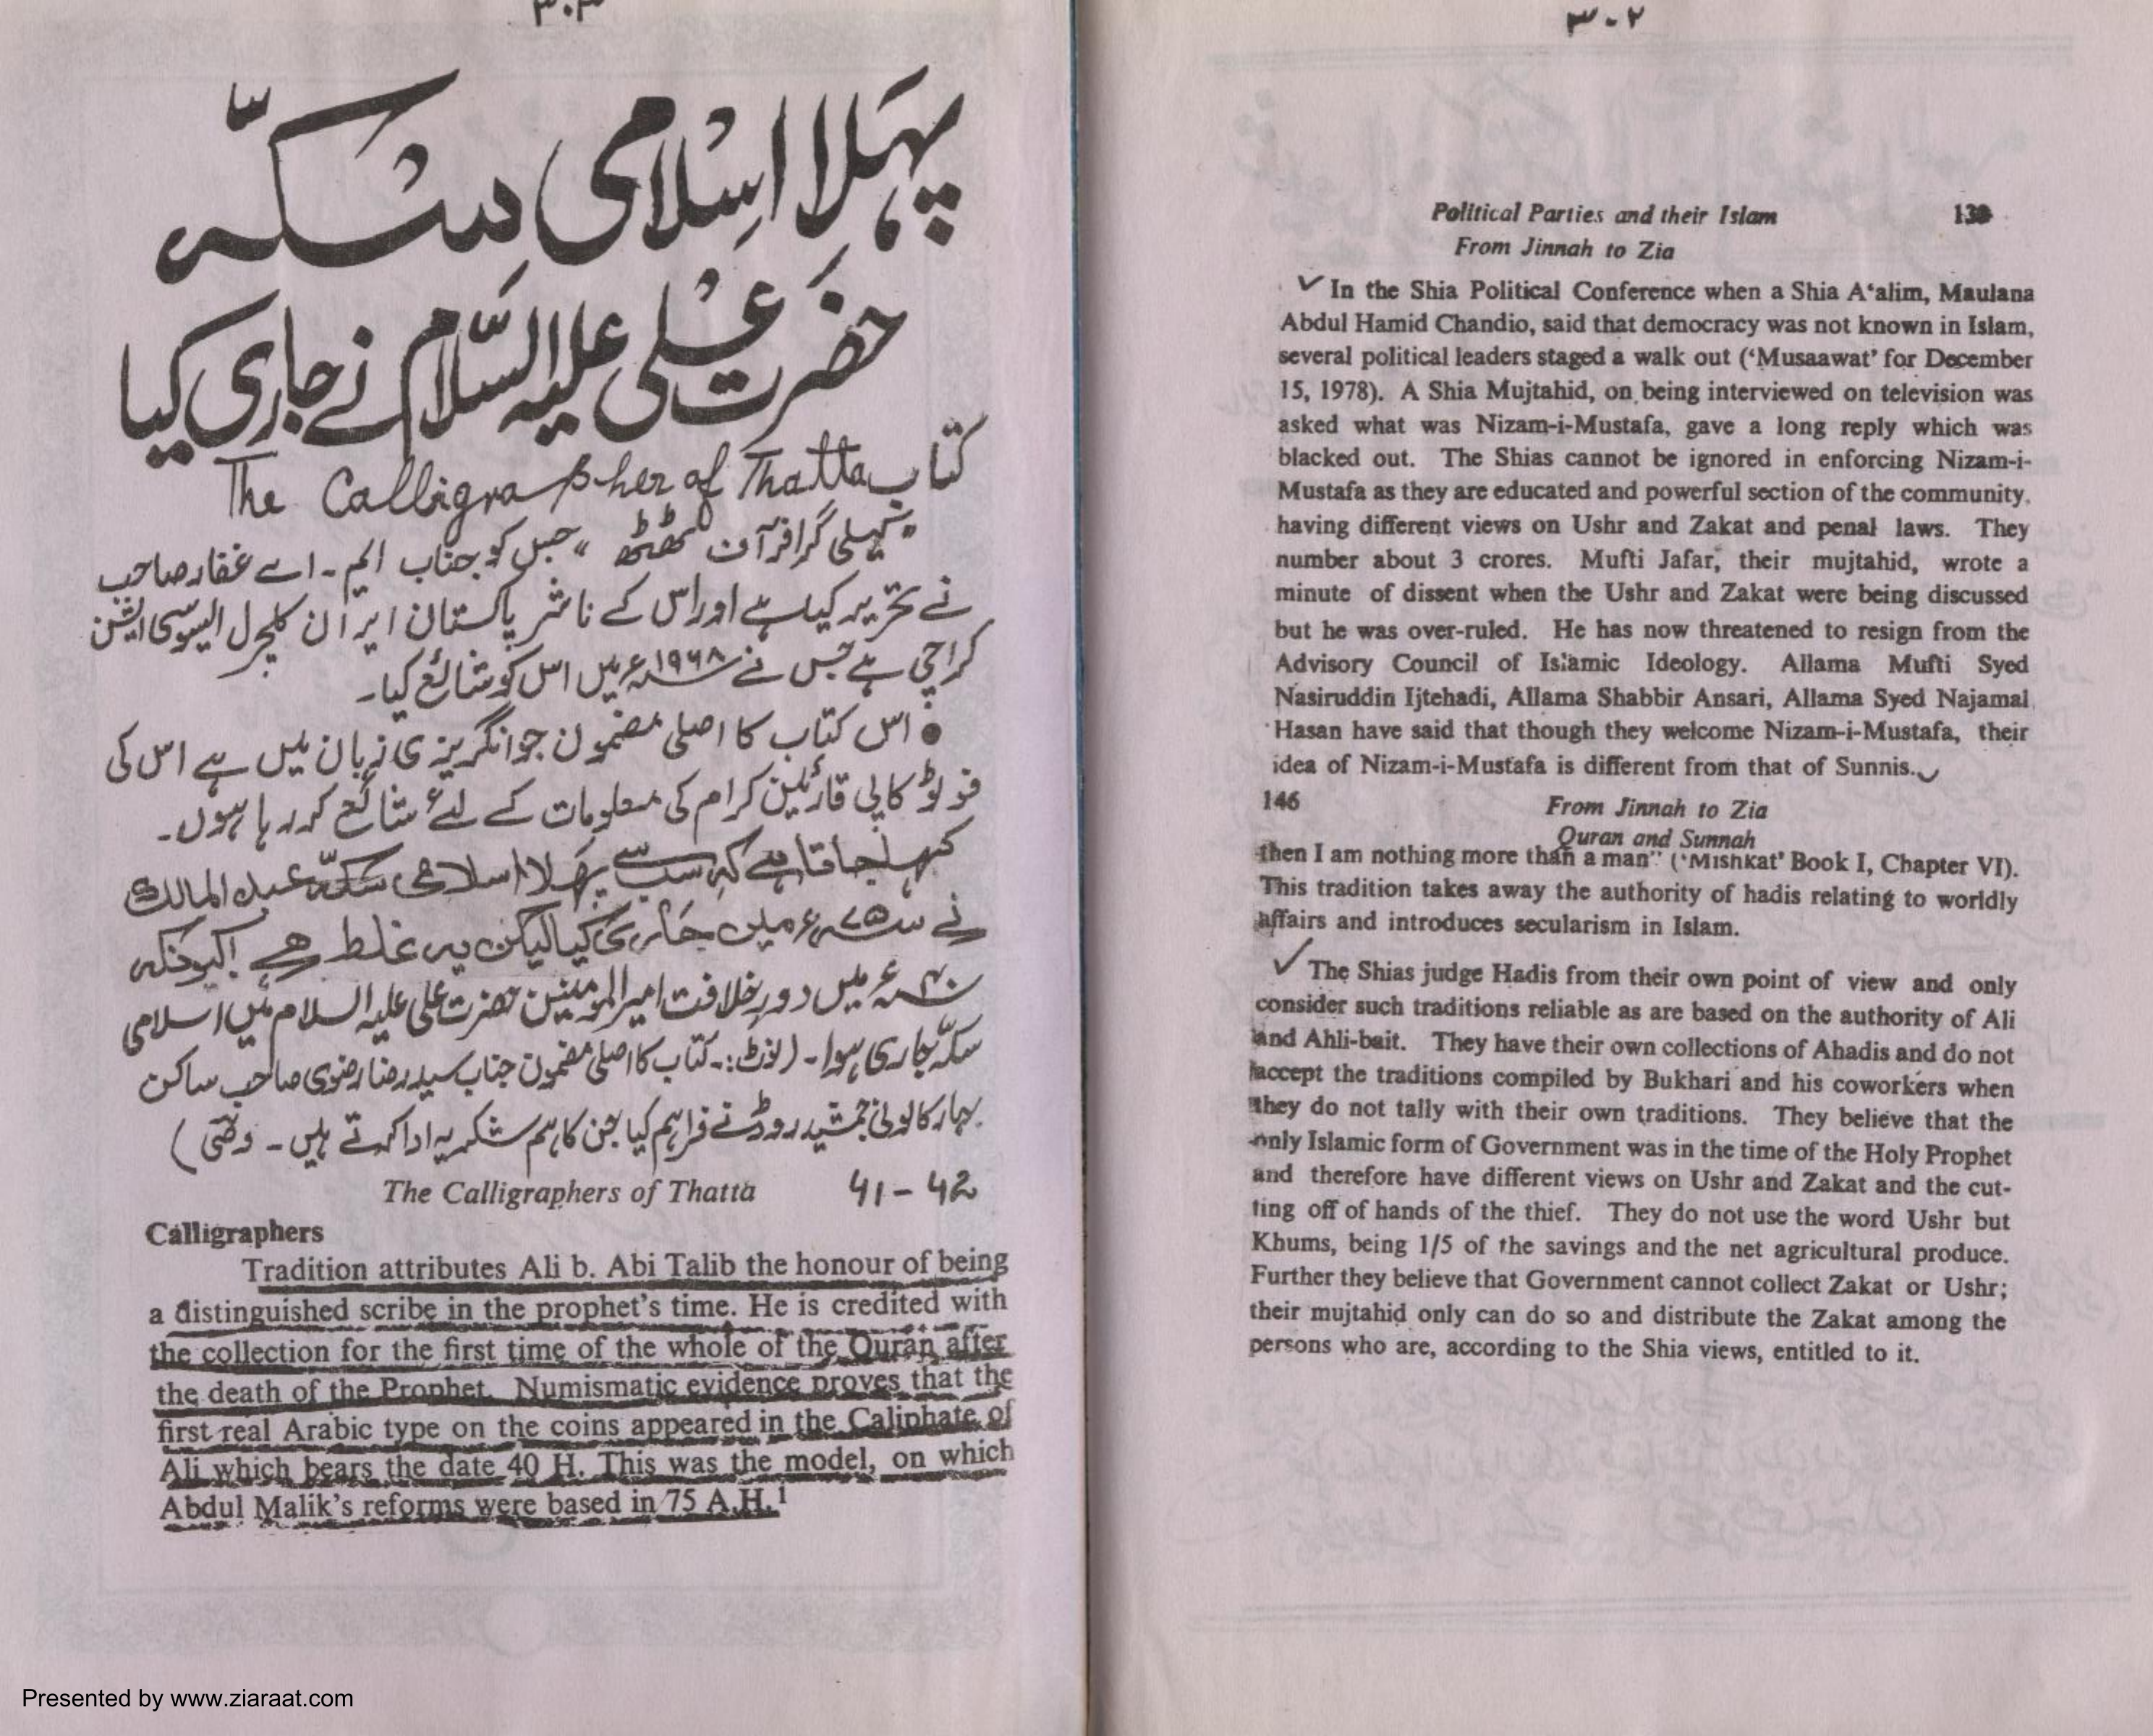 ۳۰۲
Political Parties and their Islam 139
From Jinnah to Zia
In the Shia Political Conference when a Shia A‘alim, Maulana
Abdul Hamid Chandio, said that democracy was not known in Islam,
several political leaders staged a walk out (‘Musaawat’ for December
15, 1978). A Shia Mujtahid, on being interviewed on television was
asked what was Nizam-i-Mustafa, gave a long reply which was
blacked out. The Shias cannot be ignored in enforcing Nizam-i-
Mustafa as they are educated and powerful section of the community.
having different views on Ushr and Zakat and penal laws. They
number about 3 crores. Mufti Jafar, their mujtahid, wrote a
minute of dissent when the Ushr and Zakat were being discussed
but he was over-ruled. He has now threatened to resign from the
Advisory Council of Islamic Ideology. Allama Mufti Syed
Nasiruddin Ijtehadi, Allama Shabbir Ansari, Allama Syed Najamal
Hasan have said that though they welcome Nizam-i-Mustafa, their
idea of Nizam-i-Mustafa is different from that of Sunnis.
146 From Jinnah to Zia
Quran and Sunnah
then I am nothing more than a man” (‘Mishkat’ Book I, Chapter VI).
This tradition takes away the authority of hadis relating to worldly
affairs and introduces secularism in Islam.
The Shias judge Hadis from their own point of view and only
consider such traditions reliable as are based on the authority of Ali
and Ahli-bait. They have their own collections of Ahadis and do not
accept the traditions compiled by Bukhari and his coworkers when
they do not tally with their own traditions. They believe that the
only Islamic form of Government was in the time of the Holy Prophet
and therefore have different views on Ushr and Zakat and the cut-
ting off of hands of the thief. They do not use the word Ushr but
Khums, being 1/5 of the savings and the net agricultural produce.
Further they believe that Government cannot collect Zakat or Ushr;
their mujtahid only can do so and distribute the Zakat among the
persons who are, according to the Shia views, entitled to it.
۳۰۳
پہلا اسلامی سکّہ
حضرت علی علیہ السّلام نے جاری کیا
کتاب The Calligrapher of Thatta
"کیلی گرافر آف ٹھٹھہ" جس کو جناب ایم۔اے غفار صاحب
نے تحریر کیا ہے اور اس کے ناشر پاکستان ایران کلچرل ایسوسی ایشن
کراچی ہے جس نے ۱۹۶۸ء میں اس کو شائع کیا۔
● اس کتاب کا اصلی مضمون جو انگریزی زبان میں ہے اس کی
فوٹو کاپی قارئین کرام کی معلومات کے لئے شائع کر رہا ہوں۔
کہا جاتا ہے کہ سب سے پہلا اسلامی سکّہ عبدالمالک
نے ۷۵ء میں جاری کیا لیکن یہ غلط ہے کیونکہ
۴۰ء میں دور خلافت امیرالمومنین حضرت علی علیہ السلام میں اسلامی
سکّہ جاری ہوا۔ (نوٹ:۔ کتاب کا اصلی مضمون جناب سید رضا رضوی صاحب ساکن
بہار کالونی جمشید روڈ نے فراہم کیا جن کا ہم شکریہ ادا کرتے ہیں۔ وصی)
The Calligraphers of Thatta ۶۱-۶۲
Calligraphers
Tradition attributes Ali b. Abi Talib the honour of being
a distinguished scribe in the prophet’s time. He is credited with
the collection for the first time of the whole of the Quran after
the death of the Prophet. Numismatic evidence proves that the
first real Arabic type on the coins appeared in the Caliphate of
Ali which bears the date 40 H. This was the model, on which
Abdul Malik’s reforms were based in 75 A.H.¹
Presented by www.ziaraat.com